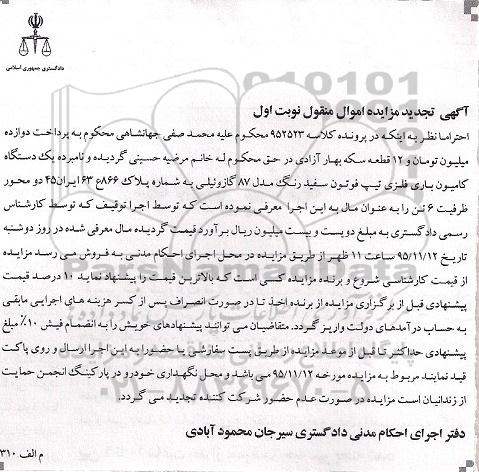 دادگستری جمهوری اسلامی
آگهی تجدید مزایده اموال منقول نوبت اول
احتراما نظر به اینکه در پرونده کلاسه ۹۵۲۵۲۳ محکوم علیه محمد صفی جهانشاهی محکوم به پرداخت دوازده
میلیون تومان و ۱۲ قطعه سکه بهار آزادی در حق محکوم له خانم مرضیه حسینی گردیده و نامبرده یک دستگاه
کامیون باری فلزی تیپ فوتون سفید رنگ مدل ۸۷ گازوئیلی به شماره پلاک ۸۶۶ع ۶۳ ایران۴۵ دو محور
ظرفیت ۶ تن را به عنوان مال به این اجرا معرفی نموده است که توسط اجرا توقیف که توسط کارشناس
رسمی دادگستری به مبلغ دویست و بیست میلیون ریال برآورد قیمت گردیده مال معرفی شده در روز دوشنبه
تاریخ ۹۵/۱۱/۱۲ ساعت ۱۱ ظهر از طریق مزایده در محل اجرای احکام مدنی به فروش می رسد مزایده
از قیمت کارشناسی شروع و برنده مزایده کسی است که بالاترین قیمت را پیشنهاد نماید ۱۰ درصد قیمت
پیشنهادی قبل از برگزاری مزایده از برنده اخذ تا در صورت انصراف پس از کسر هزینه های اجرایی مابقی
به حساب درآمدهای دولت واریز گردد. متقاضیان می توانند پیشنهادهای خویش را به انضمام فیش ۱۰٪ مبلغ
پیشنهادی حداکثر تا قبل از موعد مزایده از طریق پست سفارشی یا حضورا به این اجرا ارسال و روی پاکت
قید نمایند مربوط به مزایده مورخه ۹۵/۱۱/۱۲ می باشد و محل نگهداری خودرو در پارکینگ انجمن حمایت
از زندانیان است مزایده در صورت عدم حضور شرکت کننده تجدید می گردد.
دفتر اجرای احکام مدنی دادگستری سیرجان محمود آبادی
م الف ۳۱۰